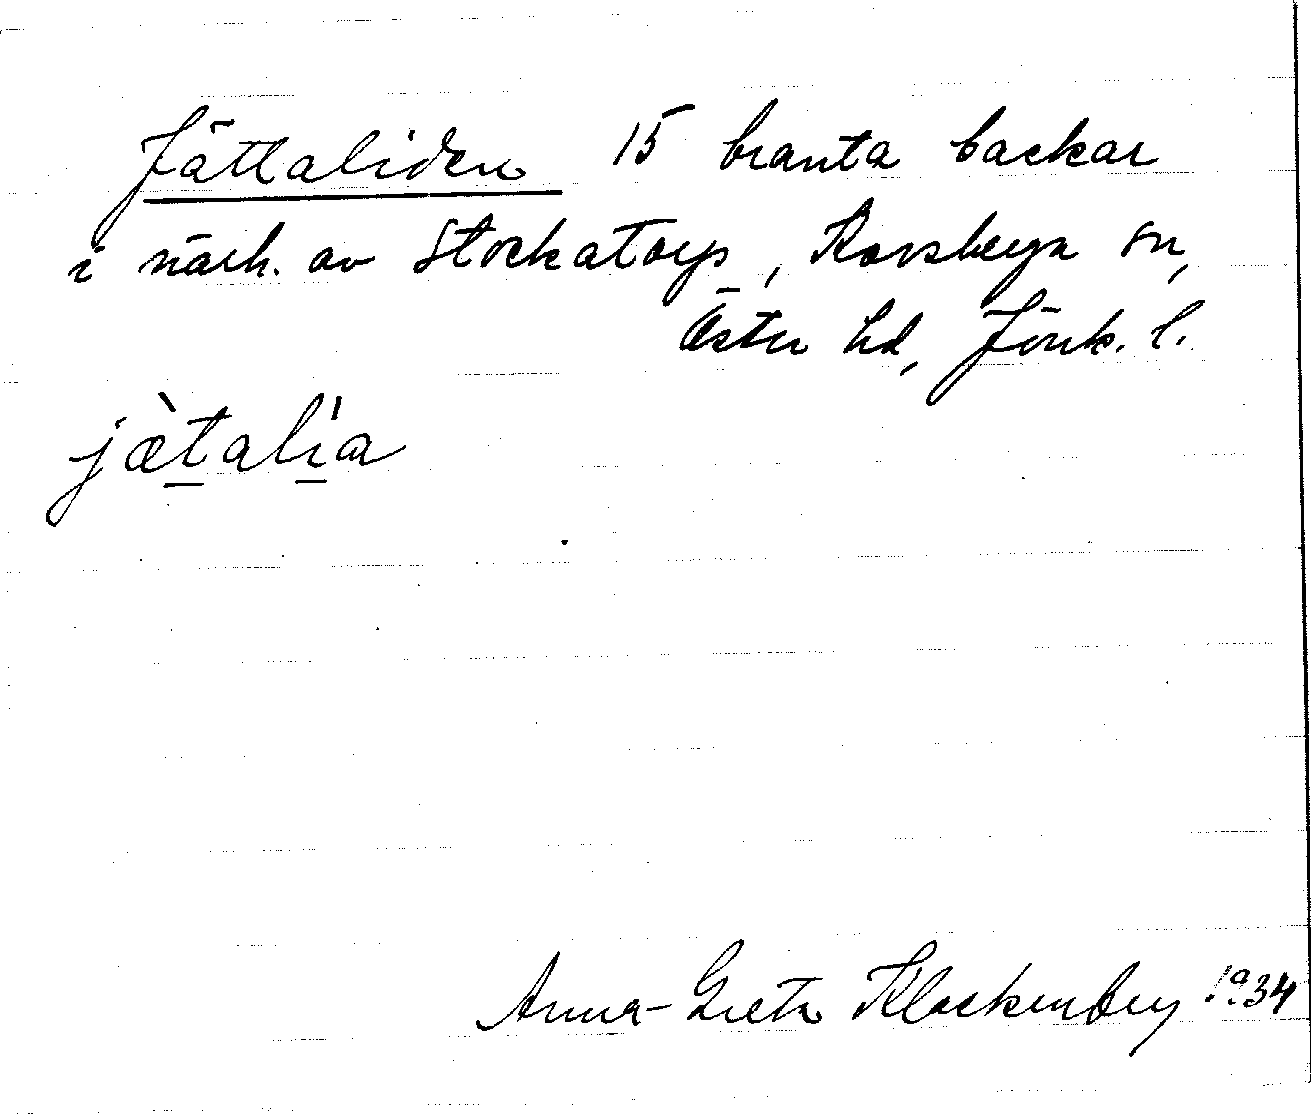 Jättaliden 15 branta backar
i närh. av Stockatorp, Korsberga sn,
Östra hd, Jönk. l.
jæ̀talía
Anna-Greta Klockenberg 1934